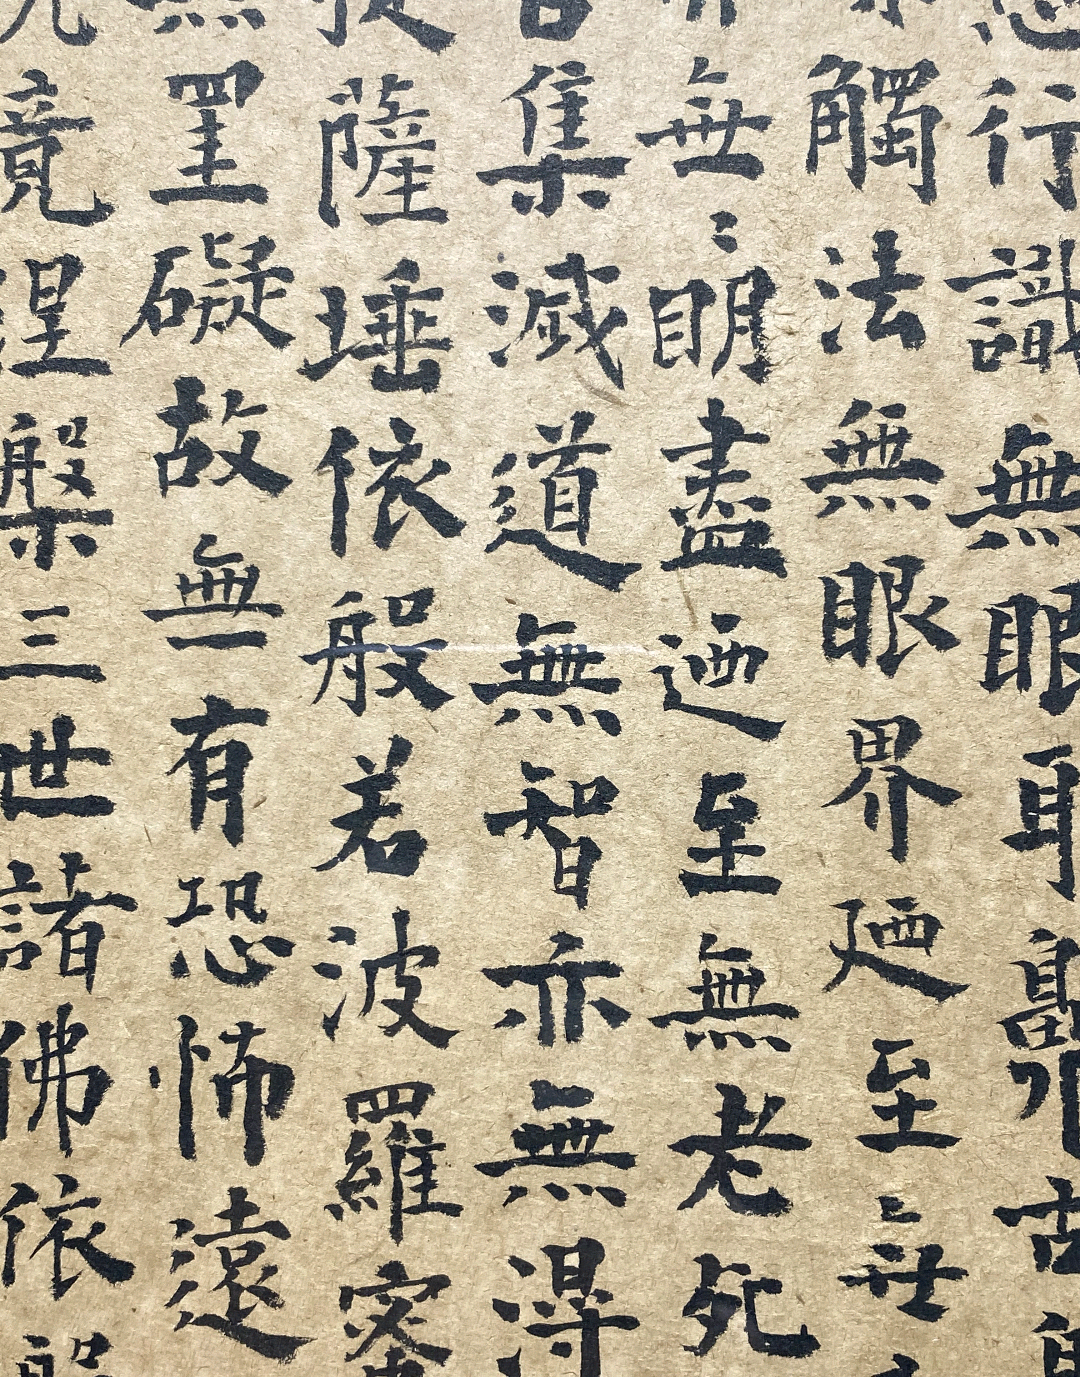 行識無眼耳鼻舌
觸法無眼界廼至無
無〻明盡迺至無老死
集滅道無智亦無得
薩埵依般若波羅蜜
罣礙故無有恐怖遠
竟涅槃三世諸佛依般